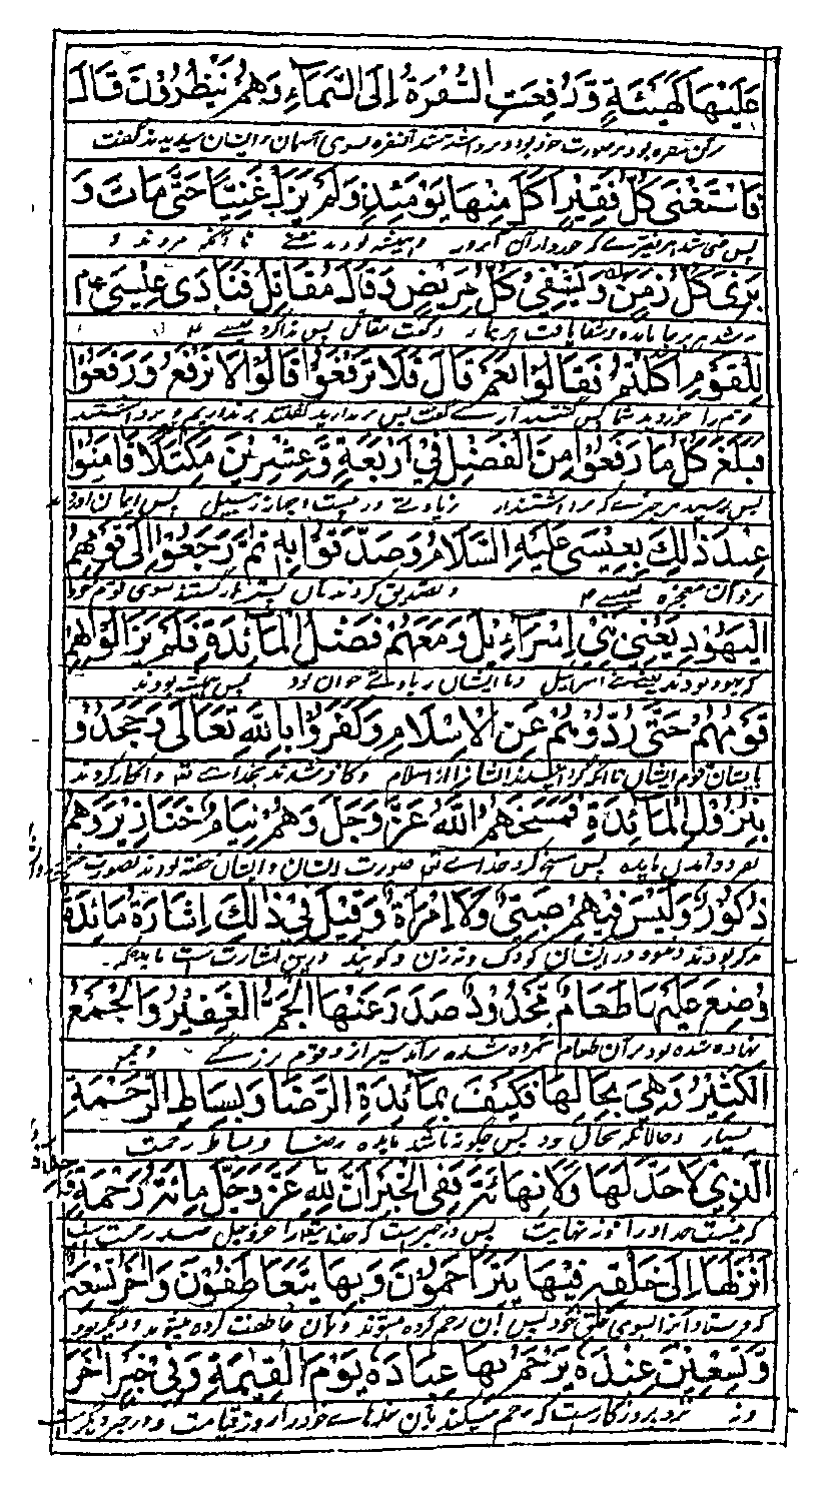 عَلَيْهَا كَهَيْئَةٍ وَّرُفِعَتِ السُّفْرَةُ اِلَى السَّمَاءِ وَهُمْ يَنْظُرُوْنَ قَالَ
فَاسْتَغْنٰى كُلُّ فَقِيْرٍ اَكَلَ مِنْهَا يَوْمَئِذٍ وَلَمْ يَزَلْ غَنِيًّا حَتّٰى مَاتَ وَ
پس غنی شد هر فقیرے که خورد از آن آنروز و همیشه بود غنی تا آنکه مردند و
بَرِئَ كُلُّ زَمِنٍ وَيُشْفٰى كُلُّ مَرِيْضٍ وَقَالَ مُقَاتِلٌ فَنَادٰى عِيْسٰى عم
وشفا یافت هر بیمار وگفت مقاتل پس ندا کرد عیسے
لِلْقَوْمِ اَكَلْتُمْ فَقَالُوْا نَعَمْ قَالَ فَلَا تَرْفَعُوْا قَالُوْا لَا نَرْفَعُ وَرَفَعُوْا
قوم را خوردید شما پس گفتند آرے گفت پس برندارید گفتند برنداریم و برداشتند
فَبَلَغَ كُلُّ مَا رَفَعُوْا مِنَ الْفَضْلِ فِيْ اَرْبَعَةٍ وَّعِشْرِيْنَ مِكْتَلًا فَاٰمَنُوْا
پس رسید هر چیزے که برداشتند از زیادتے در بیست و چهار زنبیل پس ایمان
عِنْدَ ذٰلِكَ بِعِيْسٰى عَلَيْهِ السَّلَامُ وَصَدَّقُوْا بِهِ ثُمَّ رَجَعُوْا اِلٰى قَوْمِهِمُ
نزد آن معجزه عیسے و تصدیق کردند بآن پستر باز گشتند بسوی قوم خود
الْيَهُوْدِ يَعْنِيْ بَنِيْ اِسْرَآءِيْلَ وَمَعَهُمْ فَضْلُ الْمَآئِدَةِ فَلَمْ يَزَالُوْا بِهِمْ
که یهود بودند یعنے بنے اسرائیل و با ایشان زیادتے خوان بود پس همیشه بودند
قَوْمُهُمْ حَتّٰى رَدُّوْهُمْ عَنِ الْاِسْلَامِ وَكَفَرُوْا بِاللّٰهِ تَعَالٰى وَجَحَدُوْا
بایشان قوم ایشان تا آنکه گردانیدند ایشانرا از اسلام و کافر شدند بخداے تم و انکار کردند
بِنُزُوْلِ الْمَآئِدَةِ فَمَسَخَهُمُ اللّٰهُ عَزَّ وَجَلَّ وَهُمْ نِيَامٌ خَنَازِيْرَ وَهُمْ
بفرود آمدن مایده پس مسخ کرد خداے تم صورت ایشان و ایشان خفته بودند بصورت
ذُكُوْرٌ وَلَيْسَ فِيْهِمْ صَبِيٌّ وَلَا اِمْرَاَةٌ وَقِيْلَ فِيْ ذٰلِكَ اِشَارَةٌ مَائِدَةٌ
مذکر بودند و نبود در ایشان کودک و نه زن و گویند درین اشارت ست مایده که
وُضِعَ عَلَيْهَا طَعَامٌ مَّحْدُوْدٌ صَدَرَ عَنْهَا الْجَمُّ الْغَفِيْرُ وَالْجَمْعُ
نهاده شده بود بر آن طعام شمرده شده برآمد سیر از و قوم بزرگے و جمع
الْكَثِيْرُ وَهِيَ بِحَالِهَا فَكَيْفَ بِمَآئِدَةِ الرِّضَا وَبِسَاطِ الرَّحْمَةِ
بسیار و حالانکه بحال بود پس چگونه باشد مایده رضا و بساط رحمت
الَّذِيْ لَا حَدَّ لَهَا وَلَا نِهَايَةَ فَفِي الْخَبَرِ اَنَّ لِلّٰهِ عَزَّ وَجَلَّ مِائَةَ رَحْمَةٍ
که نیست حد او را و نه نهایت پس در خبرست که خدایتعالی را عز وجل صد رحمت ست
اَنْزَلَهَا اِلٰى خَلْقِهِ فِيْهَا يَتَرَاحَمُوْنَ وَبِهَا يَتَعَاطَفُوْنَ وَاَخَّرَ تِسْعَةً
که فرستاد آنرا بسوی خلق خود پس بآن رحم کرده میشوند و بآن عاطفت کرده میشوند و
وَّتِسْعِيْنَ عِنْدَهُ يَرْحَمُ بِهَا عِبَادَهُ يَوْمَ الْقِيٰمَةِ وَفِيْ خَبَرٍ اٰخَرَ
که رحم میکند بآن بندهاے خود را روز قیامت و در خبر دیگرست